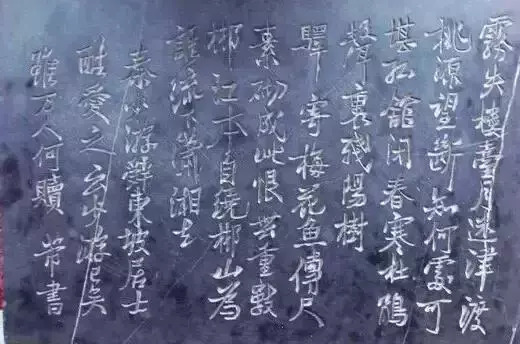 霧失樓臺月迷津渡
桃源望斷知何處可
堪孤舘閉春寒杜鵑
聲裏殘陽樹
驛寄梅花魚傳尺
素砌成此恨無重數
郴江本自繞郴山為
誰流下瀟湘去
秦少游辭東坡居士
酷愛之云少游已矣
雖万人何贖 芾書